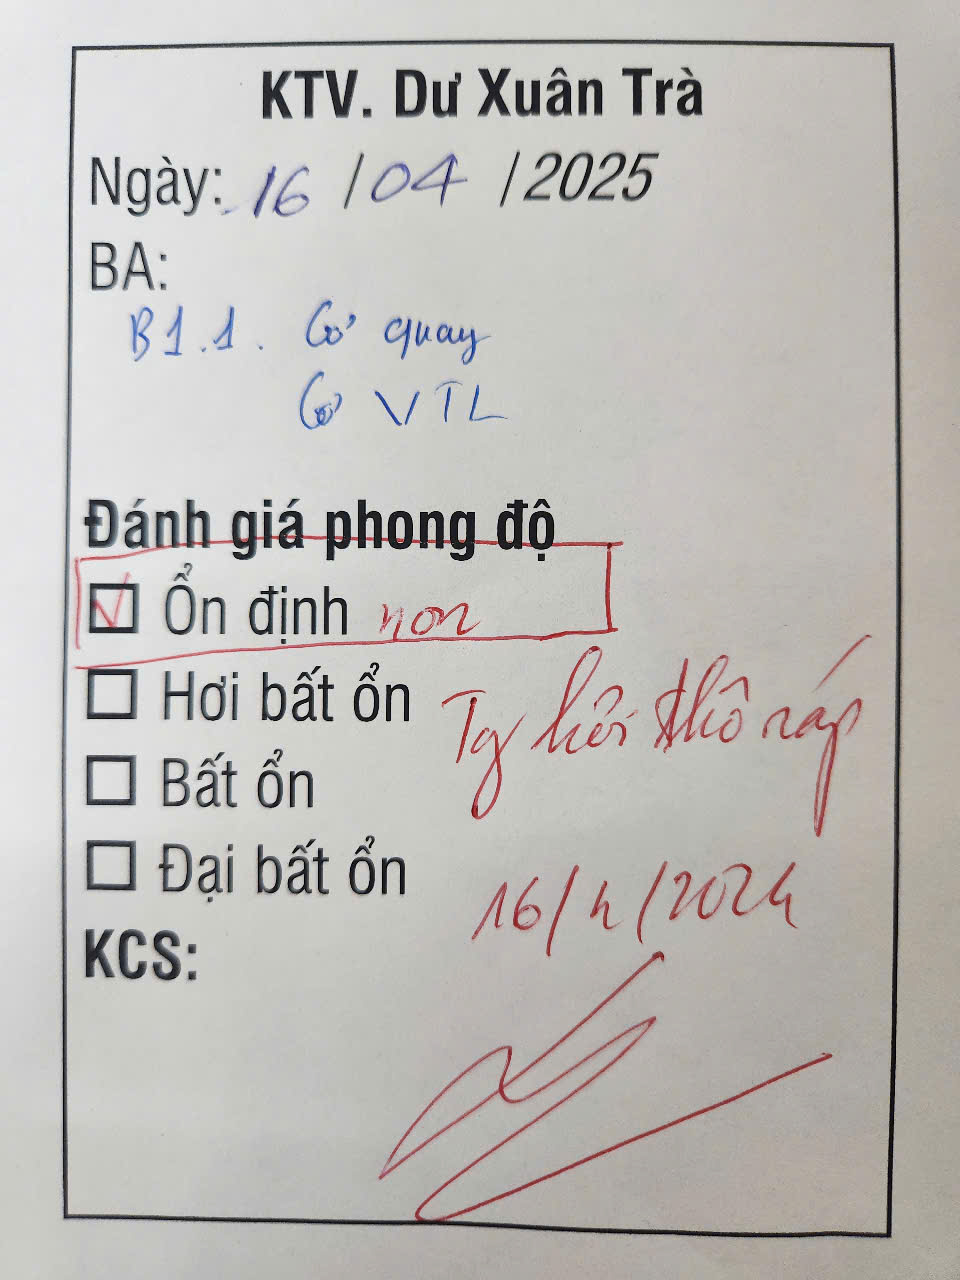 KTV. Dư Xuân Trà
Ngày: 16 / 04 / 2025
BA:
B1.1. Cơ quay
Cơ VTL
Đánh giá phong độ
Ổn định non
Hơi bất ổn
Tg hơi thô ráp
Bất ổn
Đại bất ổn
16/4/2024
KCS: